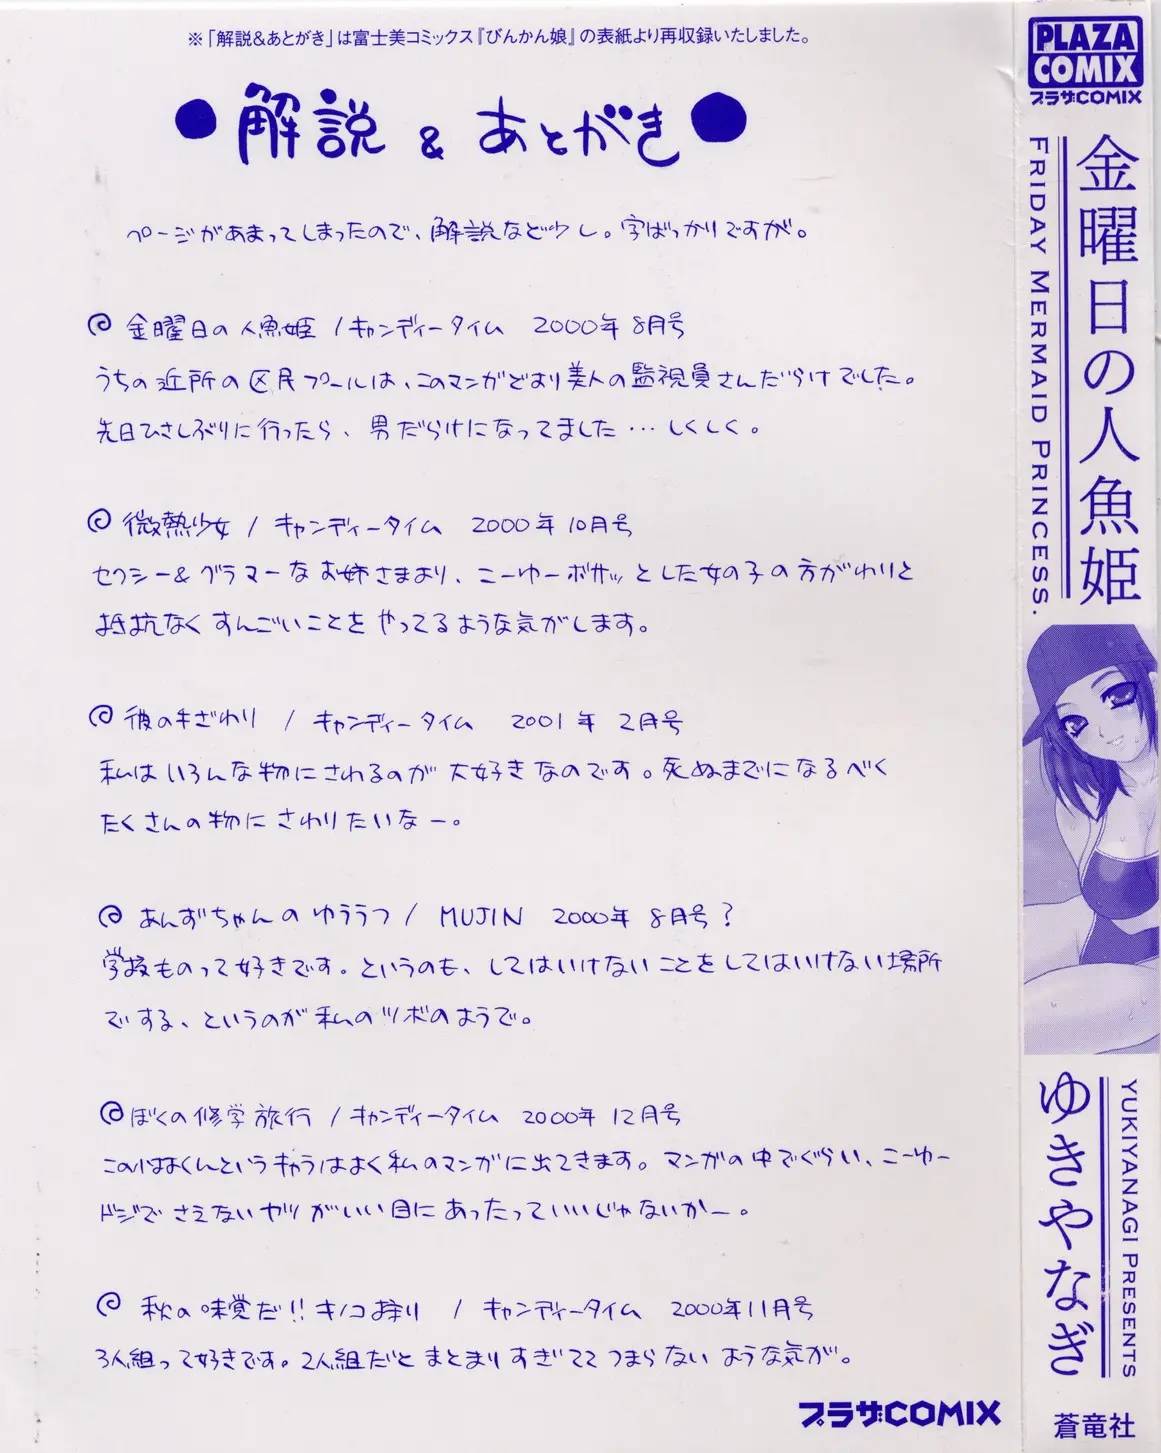 ※「解説&あとがき」は富士美コミックス『びんかん娘』の表紙より再収録いたしました。
●解説 & あとがき●
ページがあまってしまったので、解説など少し。字ばっかりですが。
金曜日の人魚姫 / キャンディータイム 2000年8月号
うちの近所の区民プールは、このマンガどおり美人の監視員さんだらけでした。
先日ひさしぶりに行ったら、男だらけになってました…しくしく。
微熱少女 / キャンディータイム 2000年10月号
セクシー&グラマーなお姉さまより、こーゆーボサッとした女の子の方がわりと
抵抗なくすんごいことをやってるような気がします。
彼の手ざわり / キャンディータイム 2001年2月号
私はいろんな物にさわるのが大好きなのです。死ぬまでになるべく
たくさんの物にさわりたいなー。
あんずちゃんのゆううつ / MUJIN 2000年8月号?
学校ものって好きです。というのも、してはいけないことをしてはいけない場所
でする、というのが私のツボのようで。
ぼくの修学旅行 / キャンディータイム 2000年12月号
このいはくんというキャラはよく私のマンガに出てきます。マンガの中でぐらい、こーゆー
ドジでさえないヤツがいい目にあったっていいじゃないかー。
秋の味覚だ!!キノコ狩り / キャンディータイム 2000年11月号
3人組って好きです。2人組だとまとまりすぎててつまらないような気が。
プラザCOMIX
PLAZA
COMIX
プラザCOMIX
金曜日の人魚姫
FRIDAY MERMAID PRINCESS.
ゆきやなぎ
YUKIYANAGI PRESENTS
蒼竜社